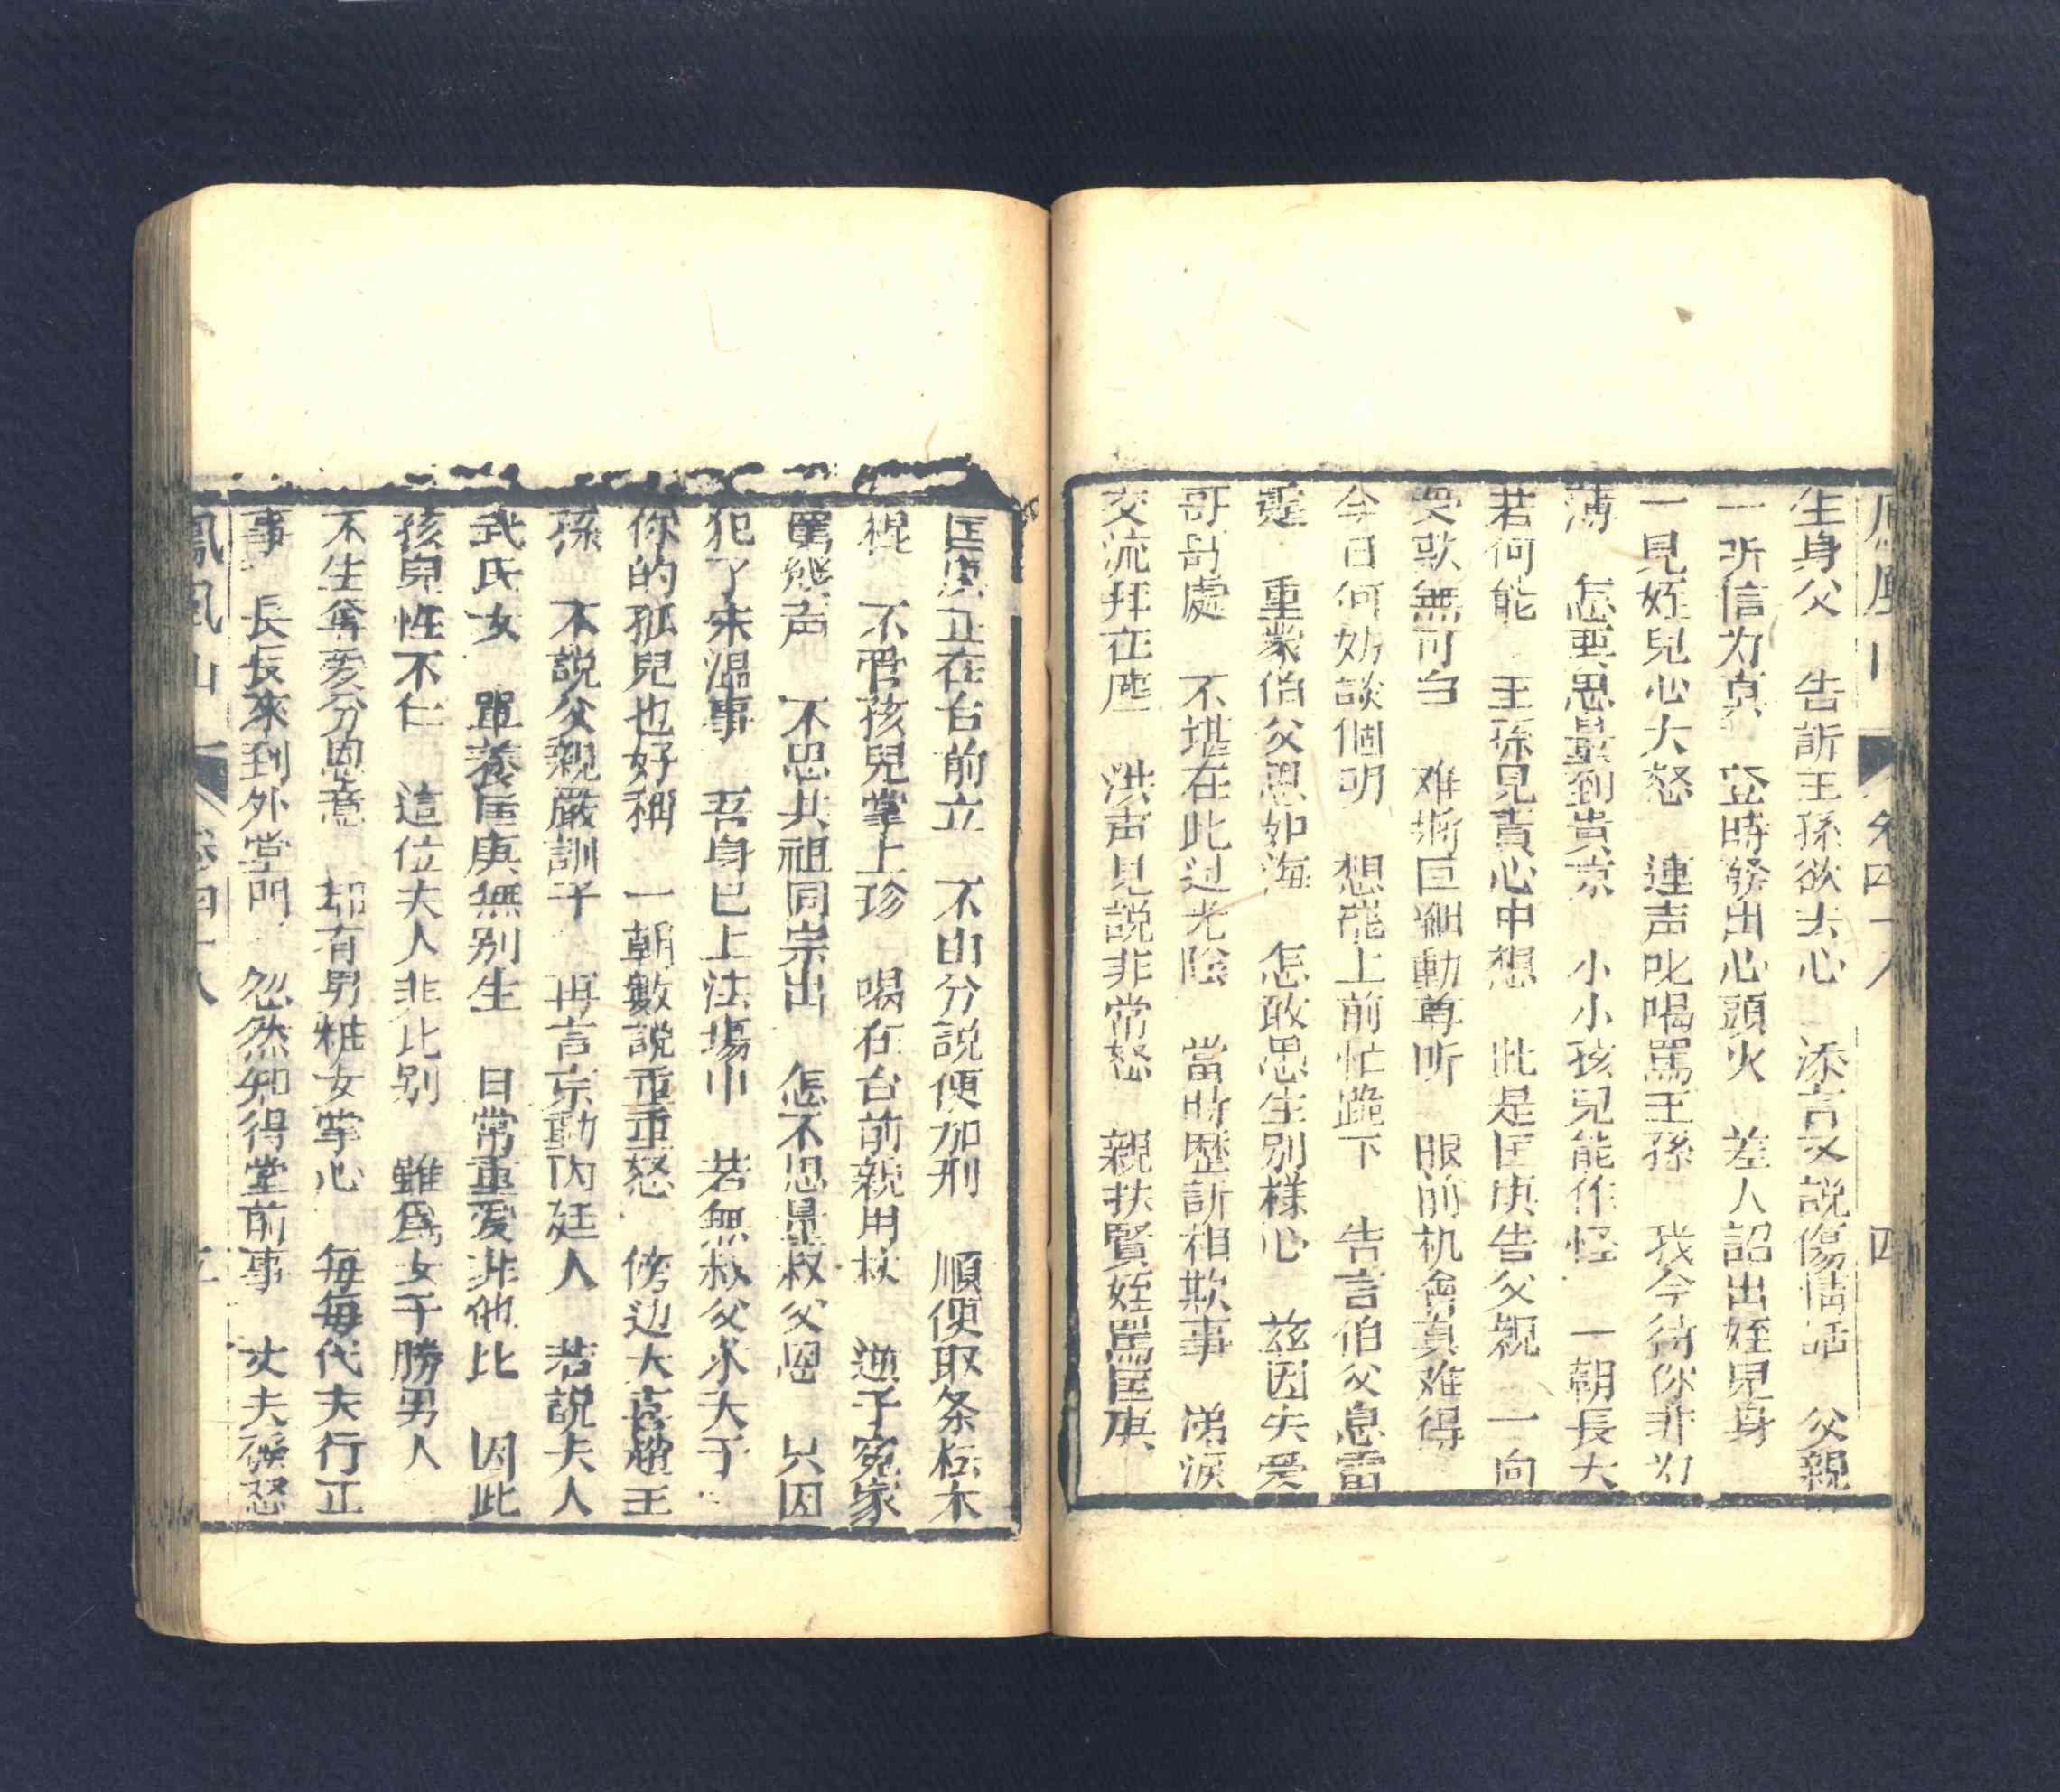 鳳凰山 卷四十八 四
生身父 告訴王孫欲去心 添言又説傷情話 父親
一听信为真 登時發出心頭火 差人詔出姪兒身
一見姪兒心大怒 連声叱喝罵王孫 我今待你非为
薄 怎要思量到貴京 小小孩兒能作怪 一朝長大
若何能 王孫見責心中想 此是匡庚告父親 一向
受欺無可白 难將巨細動尊听 眼前机會真难得
今日何妨談個明 想罷上前忙跪下 告言伯父息雷
霆 重蒙伯父恩如海 怎敢思生別樣心 兹因失爱
哥哥處 不堪在此过光陰 當時歷訴相欺事 涕淚
交流拜在塵 洪声見説非常怒 親扶賢姪罵匡庚
匡庚正在台前立 不由分説便加刑 順便取条枟木
棍 不管孩兒掌上珍 喝在台前親用杖 逆子寃家
罵幾声 不思共祖同宗出 怎不思量叔父恩 只因
犯了宋温事 吾身已上法塲中 若無叔父求夫子
你的孤兒也好稱 一朝數説重重怒 傍边大喜趙王
孫 不説父親嚴訓子 再言京動内廷人 若説夫人
武氏女 單養匡庚無别生 日常重爱非他比 因此
孩兒性不仁 這位夫人非比别 雖爲女子勝男人
不生奪爱分恩意 却有男粧女掌心 每每代夫行正
事 長長來到外堂門 忽然知得堂前事 丈夫發怒
鳳凰山 卷四十八 五